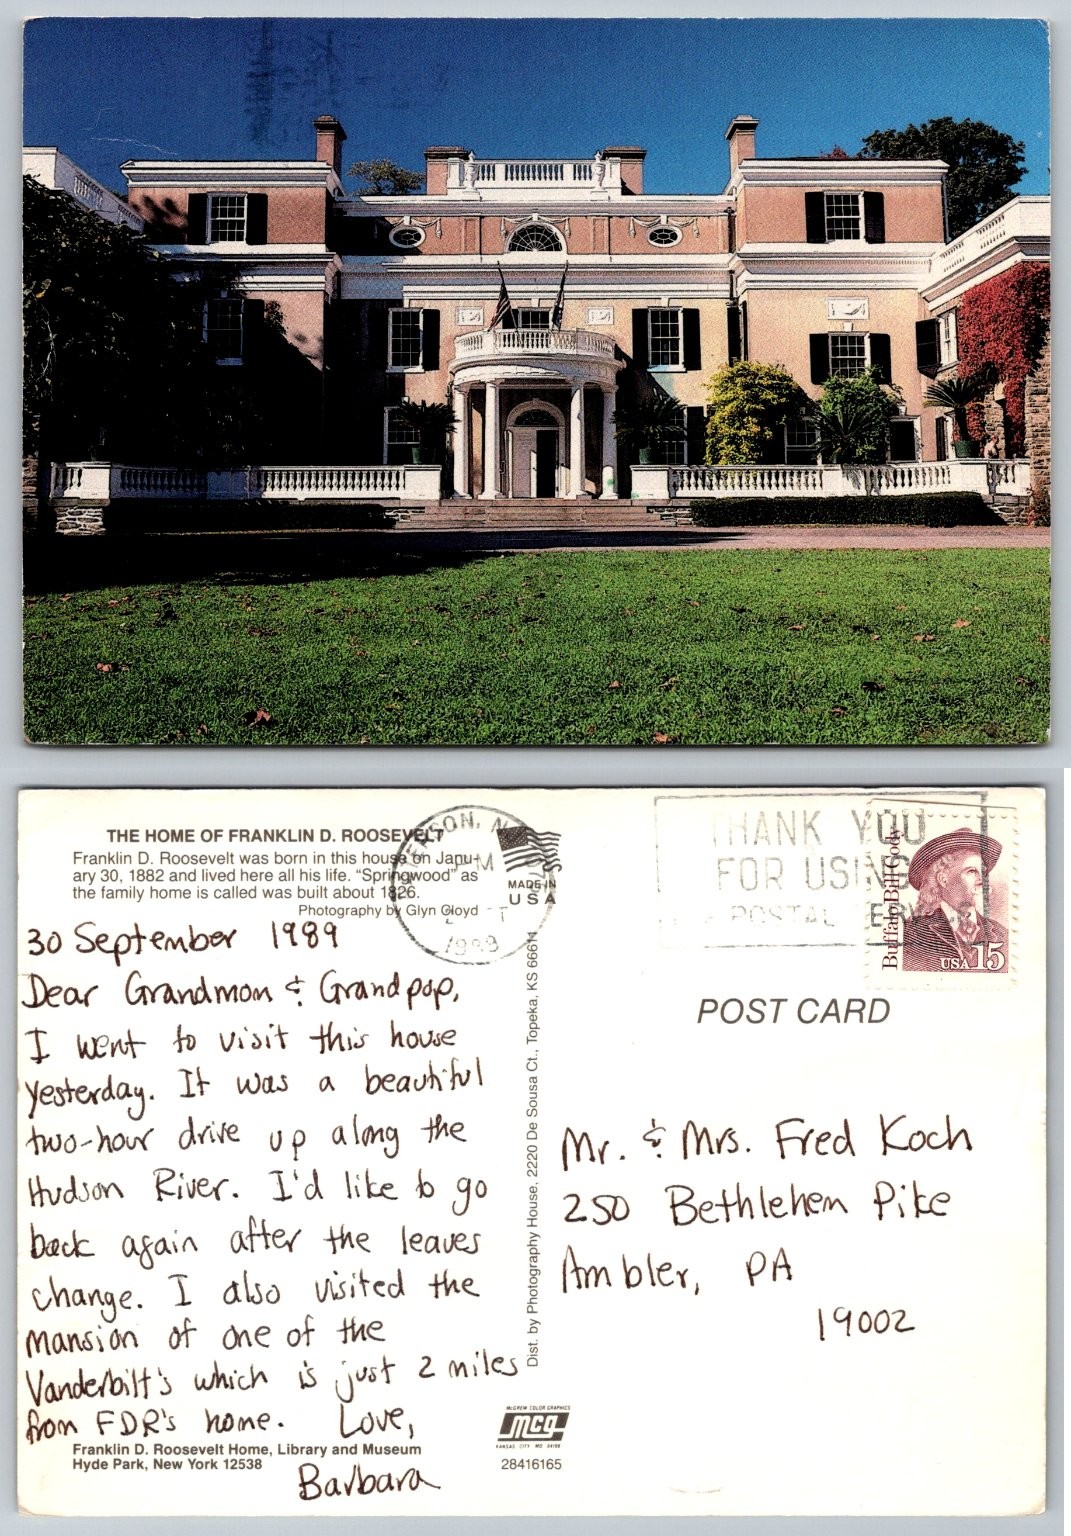 THE HOME OF FRANKLIN D. ROOSEVELT
Franklin D. Roosevelt was born in this house on Janu-
ary 30, 1882 and lived here all his life. “Springwood” as
the family home is called was built about 1826.
Photography by Glyn Cloyd
30 September 1989
Dear Grandmom & Grandpop,
I went to visit this house
yesterday. It was a beautiful
two-hour drive up along the
Hudson River. I'd like to go
back again after the leaves
change. I also visited the
mansion of one of the
Vanderbilt's which is just 2 miles
from FDR's home. Love,
Barbara
Franklin D. Roosevelt Home, Library and Museum
Hyde Park, New York 12538
MADE IN
USA
1989
Dist. by Photography House, 2220 De Sousa Ct., Topeka, KS 66611
McGREW COLOR GRAPHICS
mcg
KANSAS CITY MO 64108
28416165
THANK YOU
FOR USING
POSTAL
Buffalo Bill Cody
USA 15
POST CARD
Mr. & Mrs. Fred Koch
250 Bethlehem Pike
Ambler, PA
19002